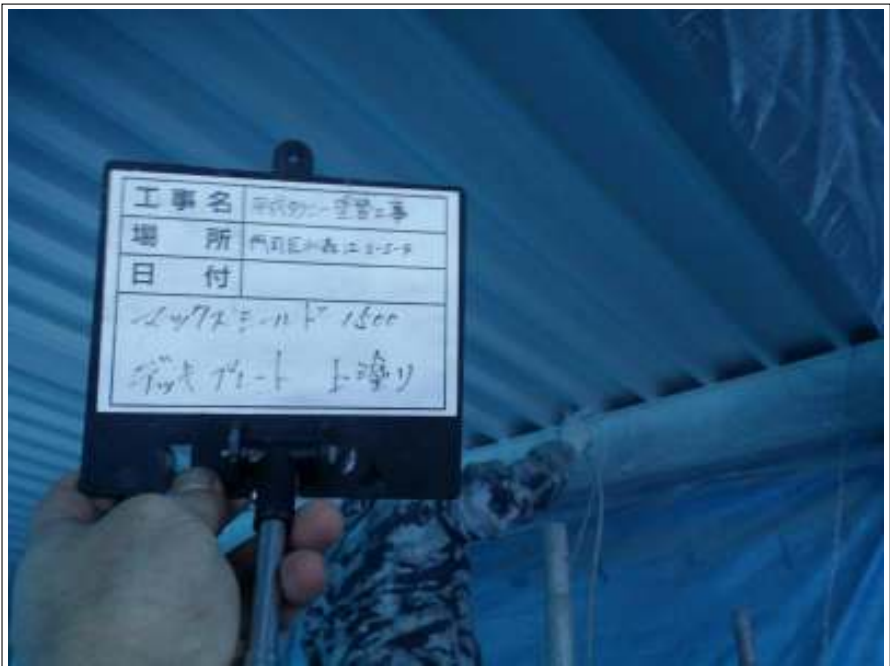 工事名 塗替工事
場所 2-5-9
日付
マックスシールド 1500
デッキプレート 上塗り